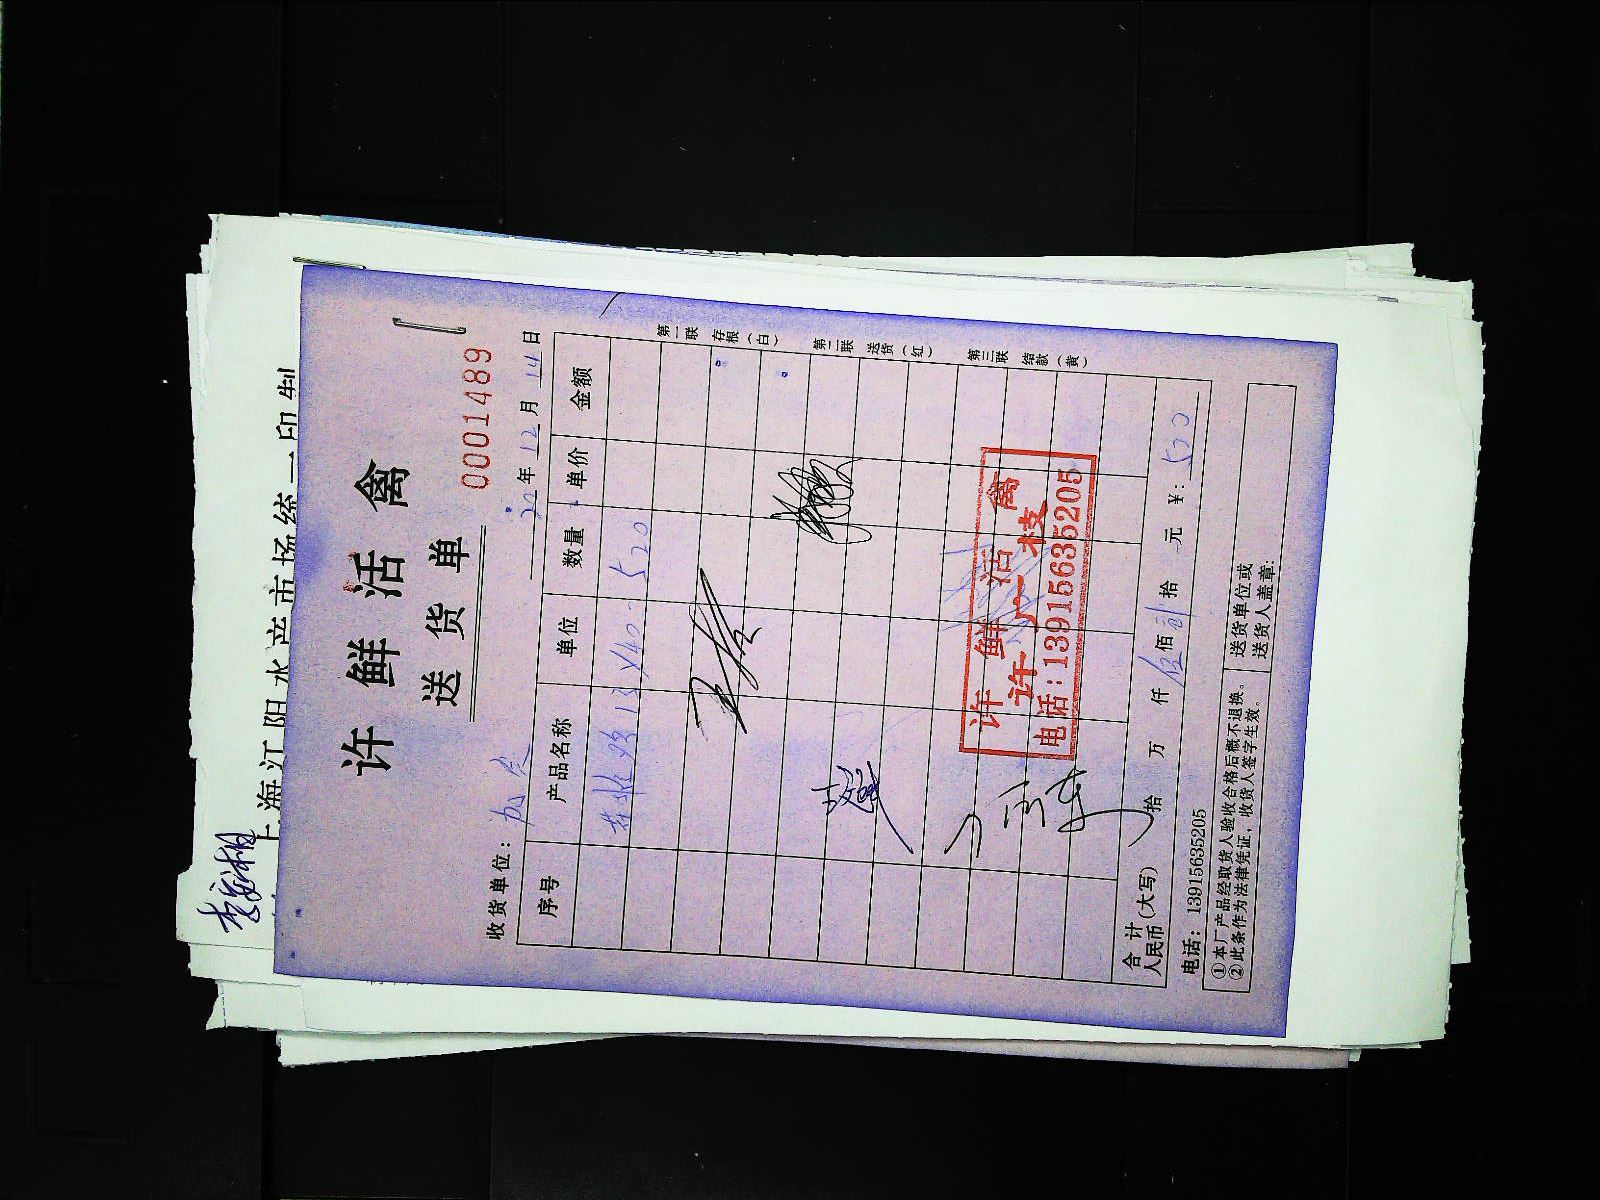 上海江阳水产市场统一印制
许鲜活禽
送货单
0001489
收货单位:
20 年 12 月 14 日
序号 产品名称 单位 数量 单价 金额
13 x40- 520
第一联 存根(白)
第二联 送货(红)
第三联 结款(黄)
许鲜活禽
许广枝
电话:13915635205
合计(大写)人民币 拾 万 仟 伍 佰 贰 拾 元 ¥: 520
电话: 13915635205
①本厂产品经取货人验收合格后概不退换。
②此条作为法律凭证,收货人签字生效。
送货单位或
送货人盖章: